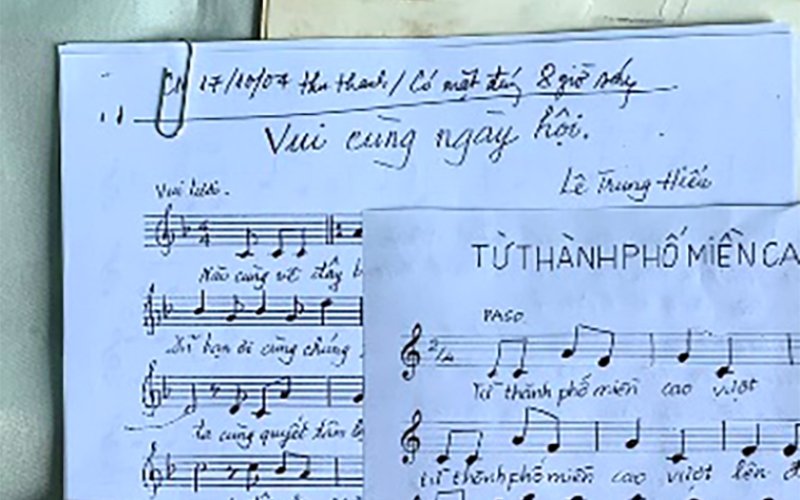 CN 17/10/04 thu thanh / Có mặt đúng 8 giờ sáng
Vui cùng ngày hội.
Lê Trung Hiếu
Vui tươi.
4/4
Nào cùng về đây
bạn ơi cùng chúng
ta cùng quyết tâm
TỪ THÀNH PHỐ MIỀN CA
PASO
2/4
Từ thành phố miền cao vượt
từ thành phố miền cao vượt lên